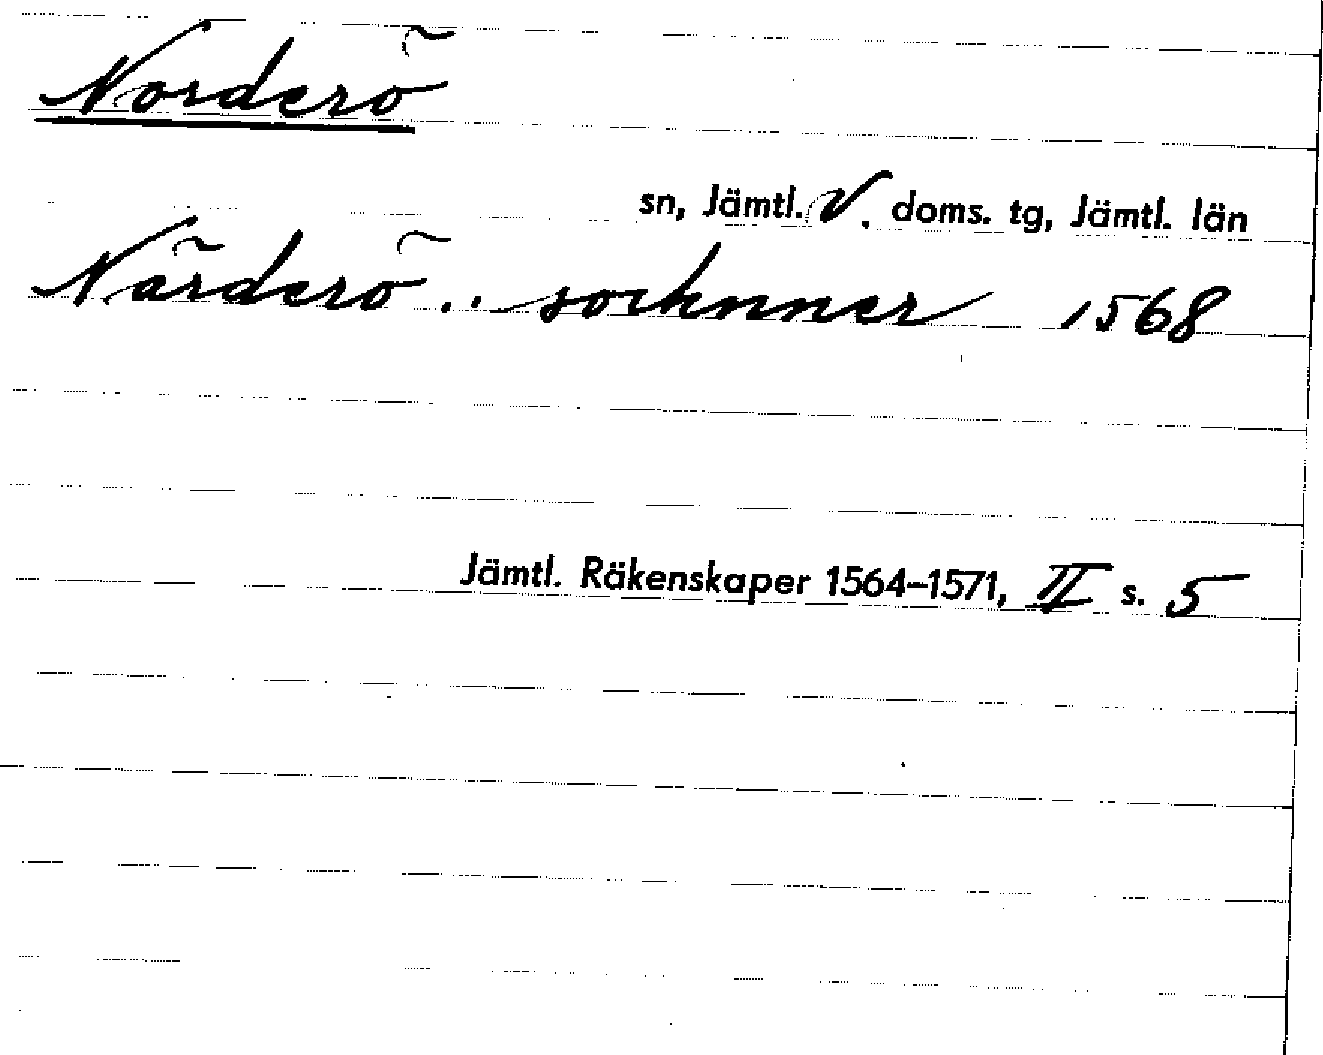 Norderö
sn, Jämtl. V. doms. tg, Jämtl. län
Närderö .. sochnner 1568
Jämtl. Räkenskaper 1564–1571, II s. 5